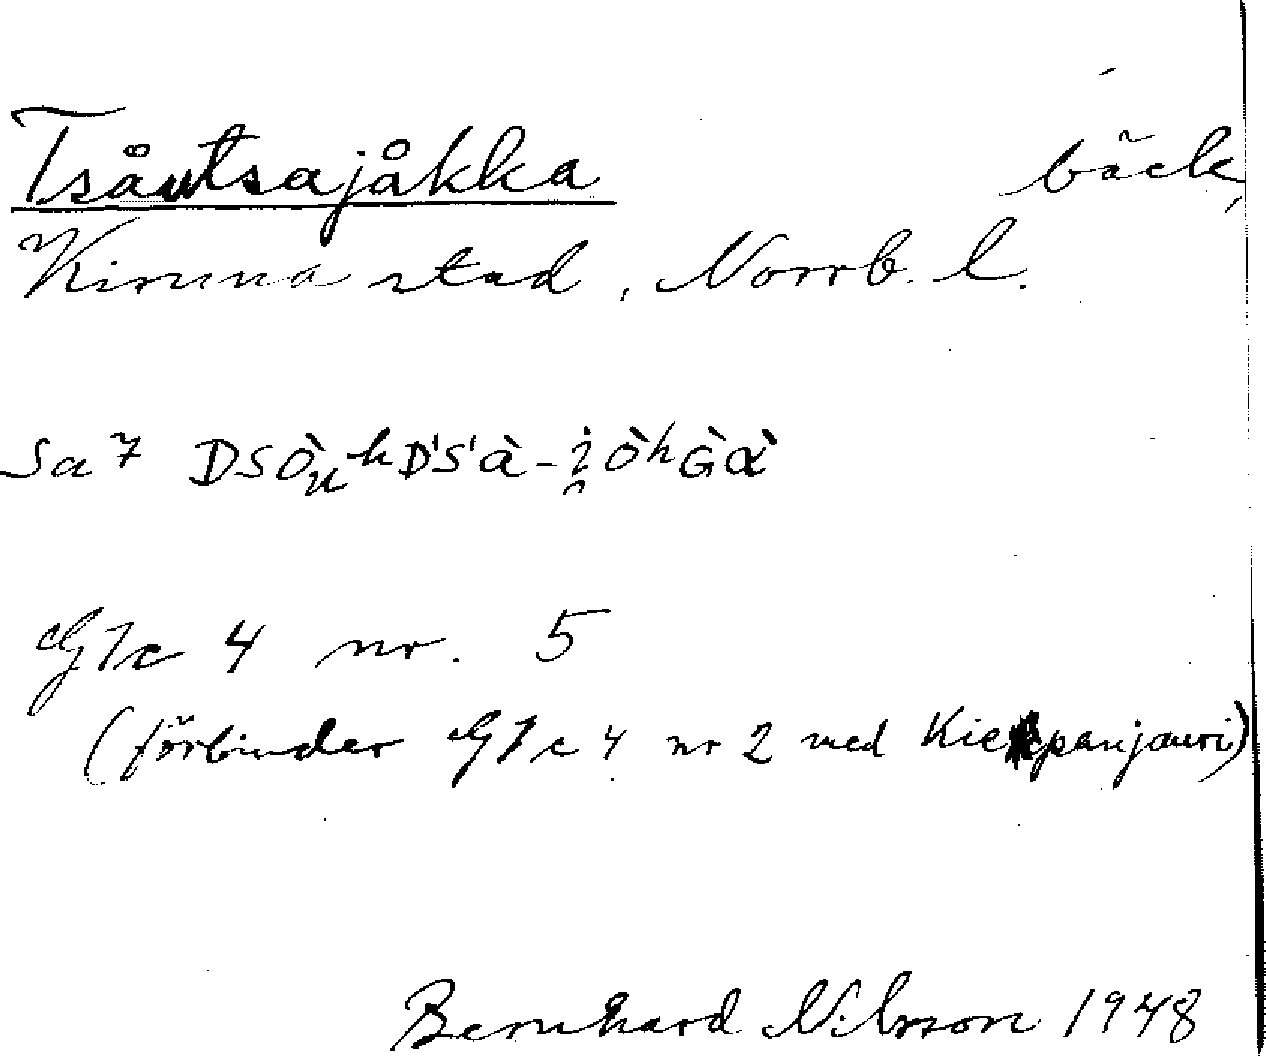 Tsåutsajåkka bäck,
Kiruna stad, Norrb. l.
Sa 7
G1c 4 nr. 5
(förbinder G1c 4 nr 2 med Kiepanjauri)
Bernhard Nilsson 1948